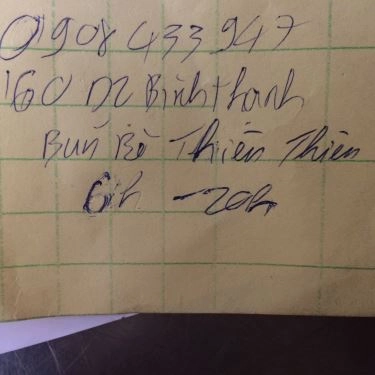 0908 433 947
160 D2 Bình thanh
Bún Bò Thiên Thiên
6h - 20h